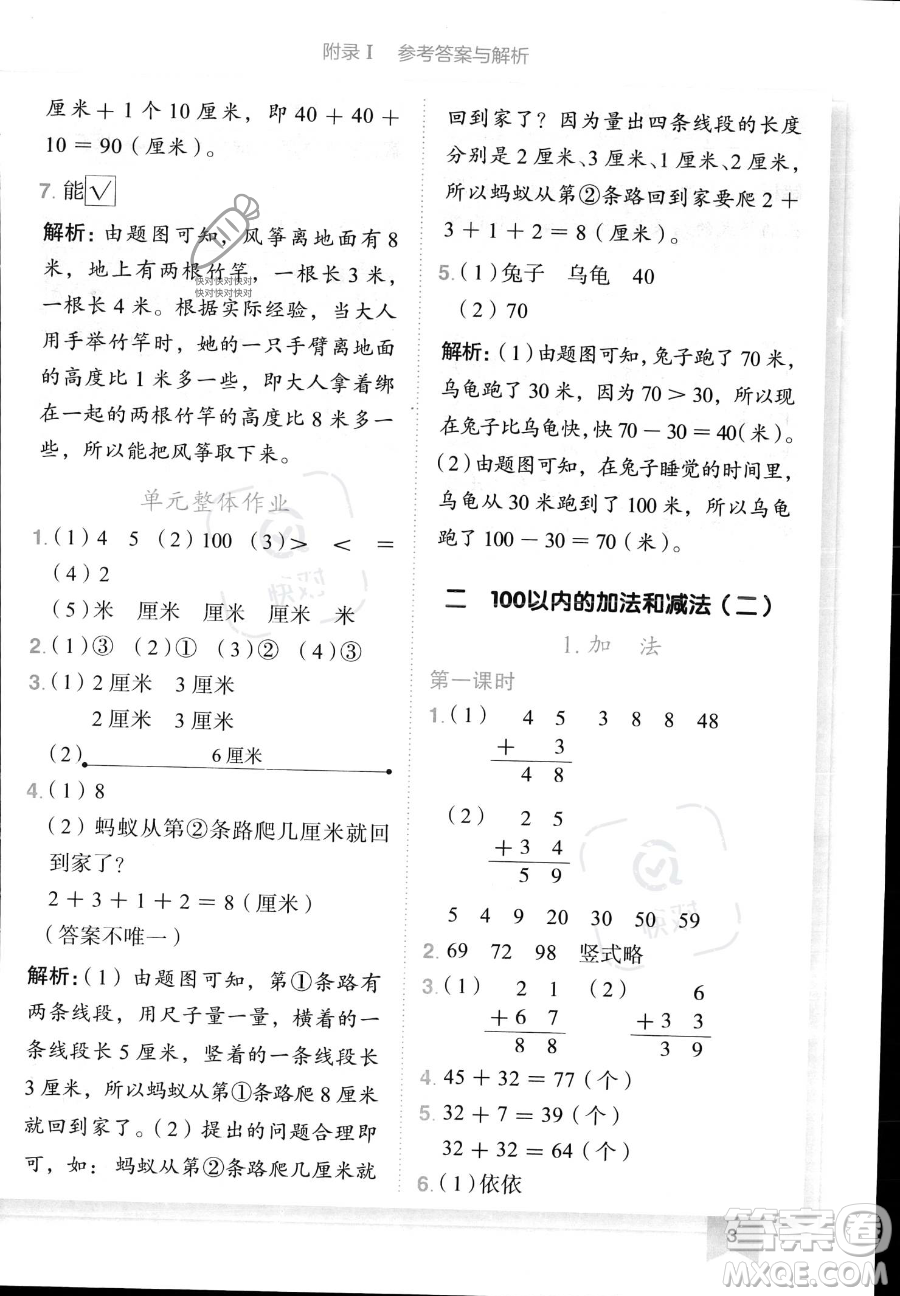 附录Ⅰ 参考答案与解析
厘米＋1 个 10 厘米，即 40 ＋ 40 ＋
10 ＝ 90（厘米）。
7. 能√
解析：由题图可知，风筝离地面有 8
米，地上有两根竹竿，一根长 3 米，
一根长 4 米。根据实际经验，当大人
用手举竹竿时，她的一只手臂离地面
的高度比 1 米多一些，即大人拿着绑
在一起的两根竹竿的高度比 8 米多一
些，所以能把风筝取下来。
单元整体作业
1.（1）4 5（2）100（3）＞ ＜ ＝
（4）2
（5）米 厘米 厘米 厘米 米
2.（1）③ （2）① （3）② （4）③
3.（1）2 厘米 3 厘米
2 厘米 3 厘米
（2） 6 厘米
4.（1）8
（2）蚂蚁从第②条路爬几厘米就回
到家了？
2＋3＋1＋2＝8（厘米）
（答案不唯一）
解析：（1）由题图可知，第①条路有
两条线段，用尺子量一量，横着的一
条线段长 5 厘米，竖着的一条线段长
3 厘米，所以蚂蚁从第①条路爬 8 厘米
就回到家了。（2）提出的问题合理即
可，如：蚂蚁从第②条路爬几厘米就
回到家了？因为量出四条线段的长度
分别是 2 厘米、3 厘米、1 厘米、2 厘米，
所以蚂蚁从第②条路回到家要爬 2＋
3＋1＋2＝8（厘米）。
5.（1）兔子 乌龟 40
（2）70
解析：（1）由题图可知，兔子跑了 70 米，
乌龟跑了 30 米，因为 70＞30，所以现
在兔子比乌龟快，快 70－30＝40(米)。
（2）由题图可知，在兔子睡觉的时间里，
乌龟从 30 米跑到了 100 米，所以乌龟
跑了 100－30＝70（米）。
二 100以内的加法和减法（二）
1.加 法
第一课时
1.（1） 4 5 3 8 8 48
＋ 3
4 8
（2） 2 5
＋ 3 4
5 9
5 4 9 20 30 50 59
2. 69 72 98 竖式略
3.（1） 2 1 （2） 6
＋ 6 7 ＋ 3 3
8 8 3 9
4. 45＋32＝77（个）
5. 32＋7＝39（个）
32＋32＝64（个）
6.（1）依依
3
快对快对快对
快对快对快对
快对
快对
答案圈
MXQE.COM